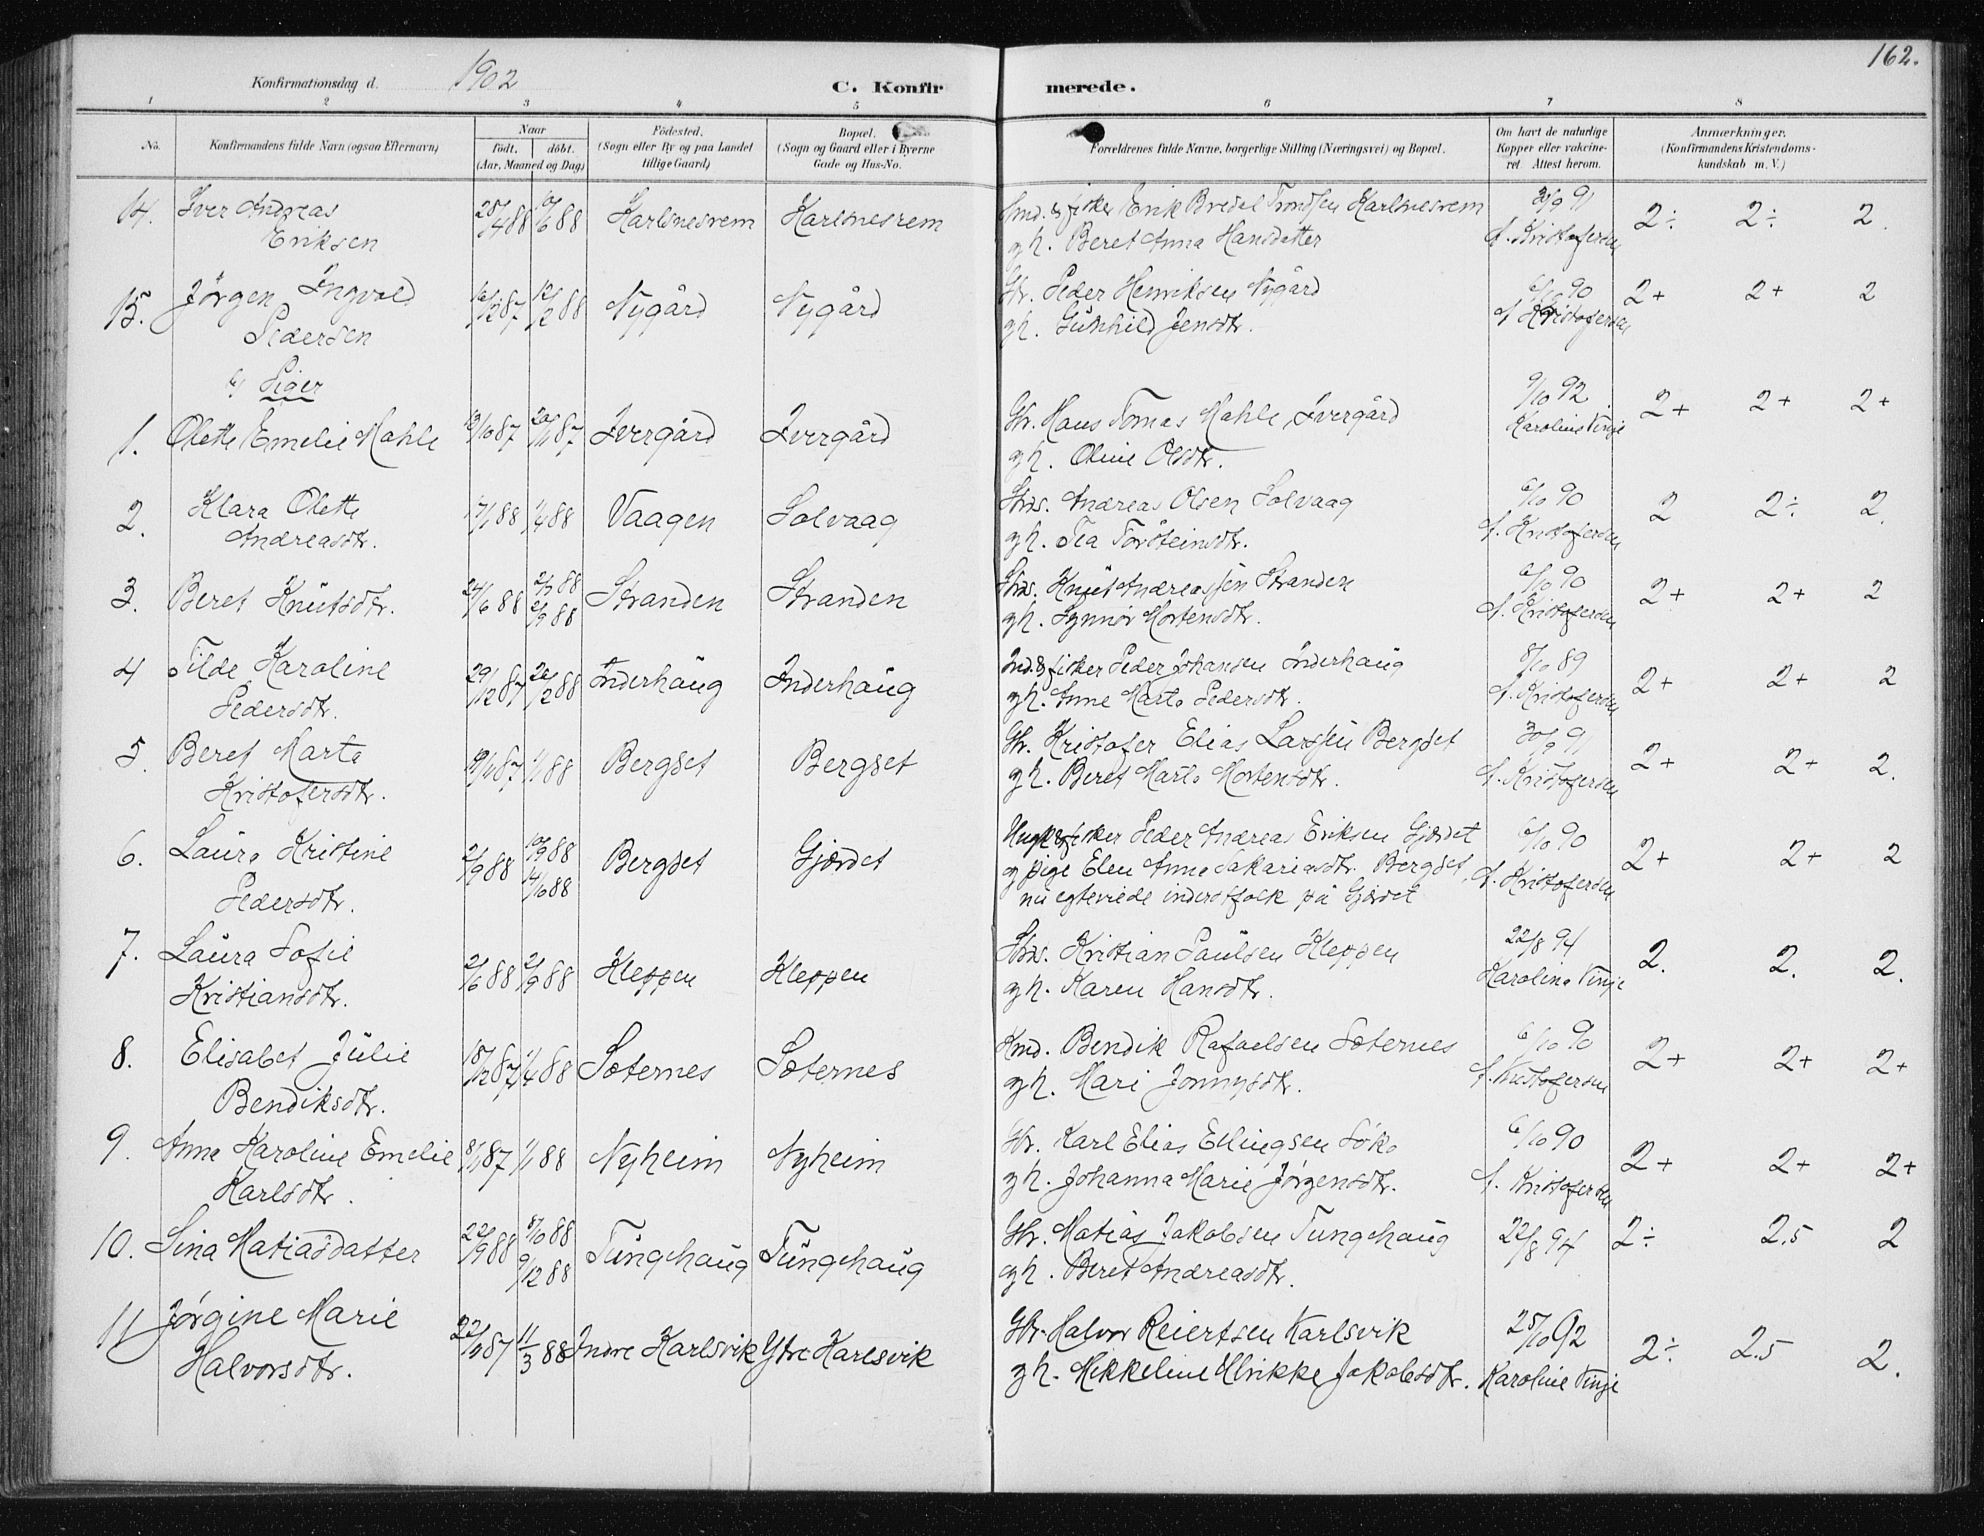 162.
Konfirmationsdag d. 1902 C. Konfirmerede.
1 2 3 4 5 6 7 8
No. Konfirmandens fulde Navn (ogsaa Efternavn) Naar født. døbt. (Aar, Maaned og Dag) Fødested. (Sogn eller By og paa Landet tillige Gaard) Bopæl. (Sogn og Gaard eller i Byerne Gade og Hus-No. Forældrenes fulde Navne, borgerlige Stilling (Næringsvei) og Bopæl. Om havt de naturlige Kopper eller vakcineret. Attest herom. Anmærkninger. (Konfirmandens Kristendomskundskab m. V.)
14. Iver Andreas 28/4 88 10/6 88 Karlsnesrem Karlsnesrem Smd. & fisker Erik Bredal Trondsen Karlsnesrem 30/9 91 2÷ 2÷ 2.
Eriksen gh. Beret Anna Hansdatter A. Kristofersen
15. Jørgen Ingvald 12/2 88 Nygård Nygård Gbr. Peder Henriksen Nygård 6/10 90 2+ 2+ 2
Pedersen gh. Gunhild Jensdtr. A. Kristofersen
b) Piger
1. Olette Emelie Mahle 13/10 87 20/11 87 Ivergård Ivergård Gbr. Hans Tomas Mahle, Ivergård 9/10 92 2+ 2+ 2+
gh. Oline Olsdtr. Karoline Vinje
2. Klara Olette 17/1 88 1/4 88 Vaagen Solvaag Strs. Andreas Olsen Solvaag 6/10 90 2 2÷ 2.
Andreasdtr. gh. Tea Torsteinsdtr. A. Kristofersen
3. Beret Knutsdtr. 24/6 88 2/7 88 2/9 88 Stranden Stranden Strs. Knut Andreassen Stranden 6/10 90 2+ 2+ 2
gh. Synnør Mortensdtr. A. Kristofersen
4 Tilde Karoline 29/12 87 26/2 88 Inderhaug Inderhaug Ind. & fisker Peder Johansen Inderhaug 8/10 89 2+ 2+ 2
Pedersdtr. gh. Anne Marta Pedersdtr. A. Kristofersen
5. Beret Marta 1/1 88 Bergset Bergset Gbr. Kristofer Elias Larssen Bergset 30/9 91 2+ 2+ 2.
Kristofersdtr. gh. Beret Marta Mortensdtr. A. Kristofersen
6. Laura Kristine 2/9 88 10/9 88 14/10 88 Bergset Gjærdet Ungk & fisker Peder Andreas Eriksen Gjærdet 6/10 90 2+ 2+ 2
Pedersdtr. og pige Elen Anna Sakariasdtr. Bergset, A. Kristofersen
nu egteviede inderstfolk på Gjærdet
7. Laura Sofie 2/6 88 2/9 88 Kleppen Kleppen Strs. Kristian Paulsen Kleppen 22/8 94 2. 2. 2.
Kristiansdtr. gh. Karen Hansdtr. Karoline Vinje
8. Elisabet Julie 18/12 87 1/4 88 Sæternes Sæternes Kmd. Bendik Rafaelsen Sæternes 6/10 90 2+ 2+ 2+
Bendiksdtr. gh. Mari Jonnysdtr. A. Kristofersen
9. Anna Karoline Emelie 8/11 87 1/1 88 Nyheim Nyheim Gbr. Karl Elias Ellingsen Søka 6/10 90 2+ 2+ 2+
Karlsdtr. gh. Johanna Marie Jørgensdtr. A. Kristofersen
10. Sina Matiasdatter 22/9 88 8/10 88 9/12 88 Tungehaug Tungehaug Gbr. Matias Jakobsen Tungehaug 22/8 94 2÷ 2.5 2
gh. Beret Andreasdtr.
11 Jørgine Marie 22/11 87 11/3 88 Indre Karlsvik Ytre Karlsvik Gbr. Halvor Reiertsen Karlsvik 25/10 92 2÷ 2.5 2.
Halvorsdtr. gh. Mikkeline Ulrikke Jakobsdtr. Karoline Vinje